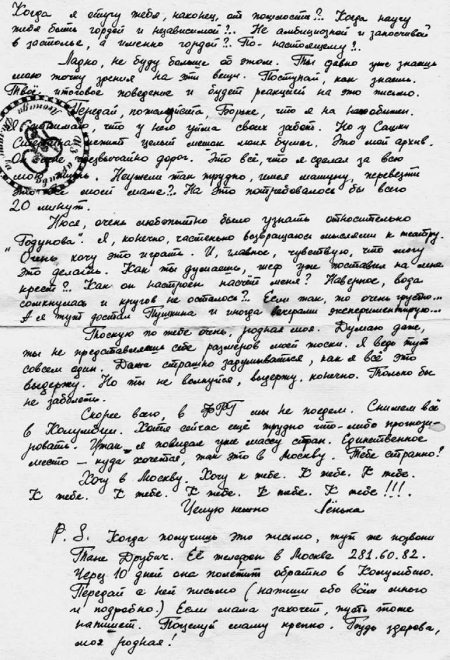 Когда я отучу тебя, наконец, от пошлости?.. Когда научу
тебя быть гордой и независимой?.. Не амбициозной и заносчивой
в застолье, а именно гордой?.. По-настоящему?..
Ладно, не буду больше об этом. Ты давно уже знаешь
мою точку зрения на эти вещи. Поступай, как знаешь.
Твоё итоговое поведение и будет реакцией на это письмо.
Передай, пожалуйста, Борьке, что я на него обижен.
Я понимаю, что у него уйма своих забот. Но у Сашки
лежит целый мешок моих бумаг. Это мой архив.
чрезвычайно дорог. Это всё, что я сделал за всю
мою жизнь. Неужели так трудно, имея машину, перевезти
это всё моей маме?.. На это потребовалось бы всего
20 минут.
Нюся, очень любопытно было узнать относительно
"Годунова". Я, конечно, частенько возвращаюсь мыслями к театру.
Очень хочу это играть. И, главное, чувствую, что могу
это делать. Как ты думаешь, шеф уже поставил на мне
крест?.. Как он настроен насчёт меня? Наверное, вода
сомкнулась и кругов не осталось?.. Если так, то очень грустно...
А я тут достал Пушкина и иногда вечерами экспериментирую...
Тоскую по тебе очень, родная моя. Думаю даже,
ты не представляешь себе размеров моей тоски. Я ведь тут
совсем один. Даже страшно задумываться, как я всё это
выдержу. Но ты не волнуйся, выдержу, конечно. Только бы
не заболеть.
Скорее всего, в ФРГ мы не поедем. Снимем всё
в Колумбии. Хотя сейчас ещё трудно что-либо прогнози-
ровать. Итак, я повидал уже массу стран. Единственное
место - куда хочется, так это в Москву. Тебе странно?
Хочу в Москву. Хочу к тебе. К тебе. К тебе.
К тебе. К тебе. К тебе. К тебе. К тебе!!!.
Целую нежно Лёнька
P.S. Когда получишь это письмо, тут же позвони
Тане Друбич. Её телефон в Москве 281.60.82.
Через 10 дней она полетит обратно в Колумбию.
Передай с ней письмо (напиши обо всём много
и подробно.) Если мама захочет, пусть тоже
напишет. Поцелуй маму крепко. Будь здорова,
моя родная!